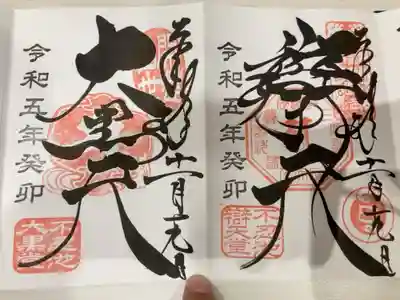 十一月十九日
辯才天
令和五年癸卯
不忍池
辯天堂
十一月十九日
大黒天
令和五年癸卯
不忍池
大黒堂